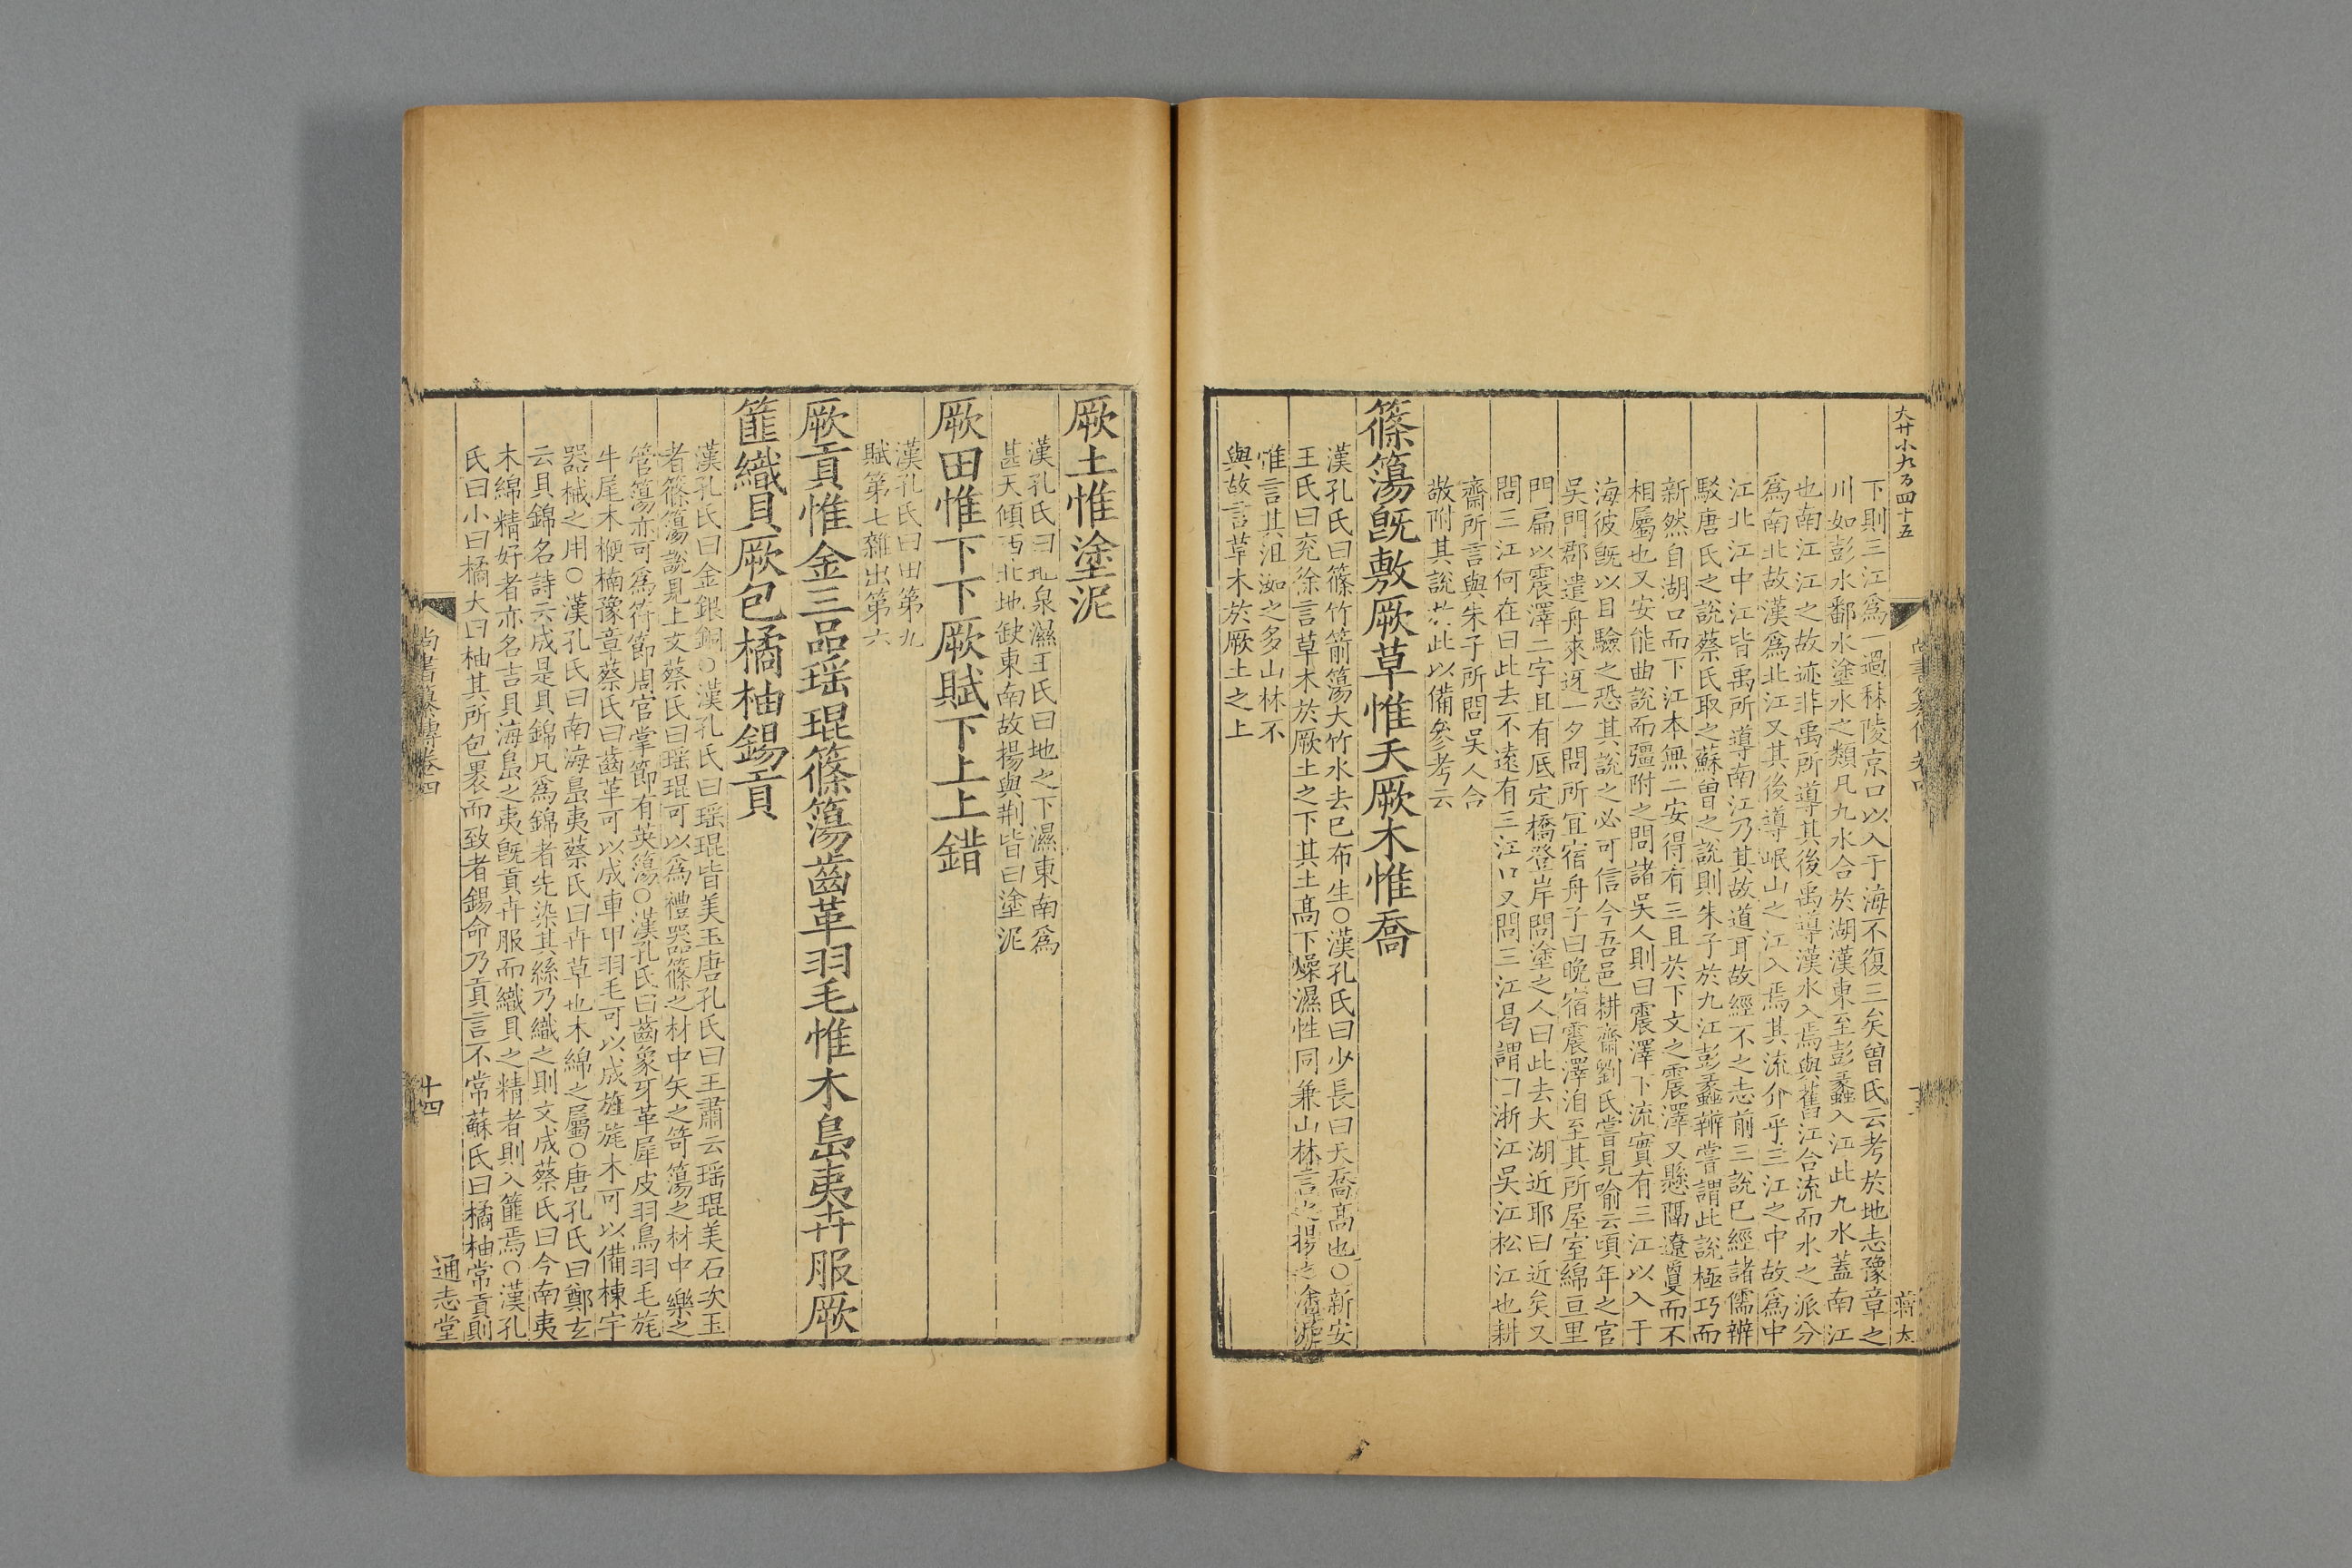 大廿小九乃四十五
蔣太
下則三江爲一過秣陵京口以入于海不復三矣曾氏云考於地志豫章之
川如彭水鄱水塗水之類凡九水合於湖漢東至彭蠡入江此九水蓋南江
也南江江之故迹非禹所導其後禹導漢水入焉與舊江合流而水之派分
爲南北故漢爲北江又其後導岷山之江入焉其流介乎三江之中故爲中
江北江中江皆禹所導南江乃其故道耳故經不之志前三說已經諸儒辨
駁唐氏之說蔡氏取之蘇曾之說則朱子於九江彭蠡辨嘗謂此說極巧而
新然自湖口而下江本無二安得有三且於下文之震澤又懸隔遼敻而不
相屬也又安能曲說而彊附之問諸吳人則曰震澤下流實有三江以入于
海彼旣以目驗之恐其說之必可信今吾邑耕齋劉氏嘗見喻云頃年之官
吳門郡遣舟來迓一夕問所宜宿舟子曰晚宿震澤洎至其所屋室綿亘里
門扁以震澤二字且有厎定橋登岸問塗之人曰此去大湖近耶曰近矣又
問三江何在曰此去不遠有三江口又問三江曷謂曰浙江吳江松江也耕
齋所言與朱子所問吳人合
敬附其說於此以備參考云
篠簜旣敷厥草惟夭厥木惟喬
漢孔氏曰篠竹箭簜大竹水去已布生○漢孔氏曰少長曰夭喬高也○新安
王氏曰兖徐言草木於厥土之下其土高下燥濕性同兼山林言之揚之塗泥
惟言其沮洳之多山林不
與故言草木於厥土之上
厥土惟塗泥
漢孔氏曰地泉濕王氏曰地之下濕東南爲
甚天傾西北地缺東南故揚與荆皆曰塗泥
厥田惟下下厥賦下上上錯
漢孔氏曰田第九
賦第七雜出第六
厥貢惟金三品瑶琨篠簜齒革羽毛惟木島夷卉服厥
篚織貝厥包橘柚錫貢
漢孔氏曰金銀銅○漢孔氏曰瑶琨皆美玉唐孔氏曰王肅云瑶琨美石次玉
者篠簜說見上文蔡氏曰瑶琨可以爲禮器篠之材中矢之笴簜之材中樂之
管簜亦可爲符節周官掌節有英簜○漢孔氏曰齒象牙革犀皮羽鳥羽毛旄
牛尾木楩楠豫章蔡氏曰齒革可以成車甲羽毛可以成旌旄木可以備棟宇
器械之用○漢孔氏曰南海島夷蔡氏曰卉草也木綿之屬○唐孔氏曰鄭玄
云貝錦名詩云成是貝錦凡爲錦者先染其絲乃織之則文成蔡氏曰今南夷
木綿精好者亦名吉貝海島之夷旣貢卉服而織貝之精者則入篚焉○漢孔
氏曰小曰橘大曰柚其所包裹而致者錫命乃貢言不常蘇氏曰橘柚常貢則
尚書纂傳卷四
十四
通志堂